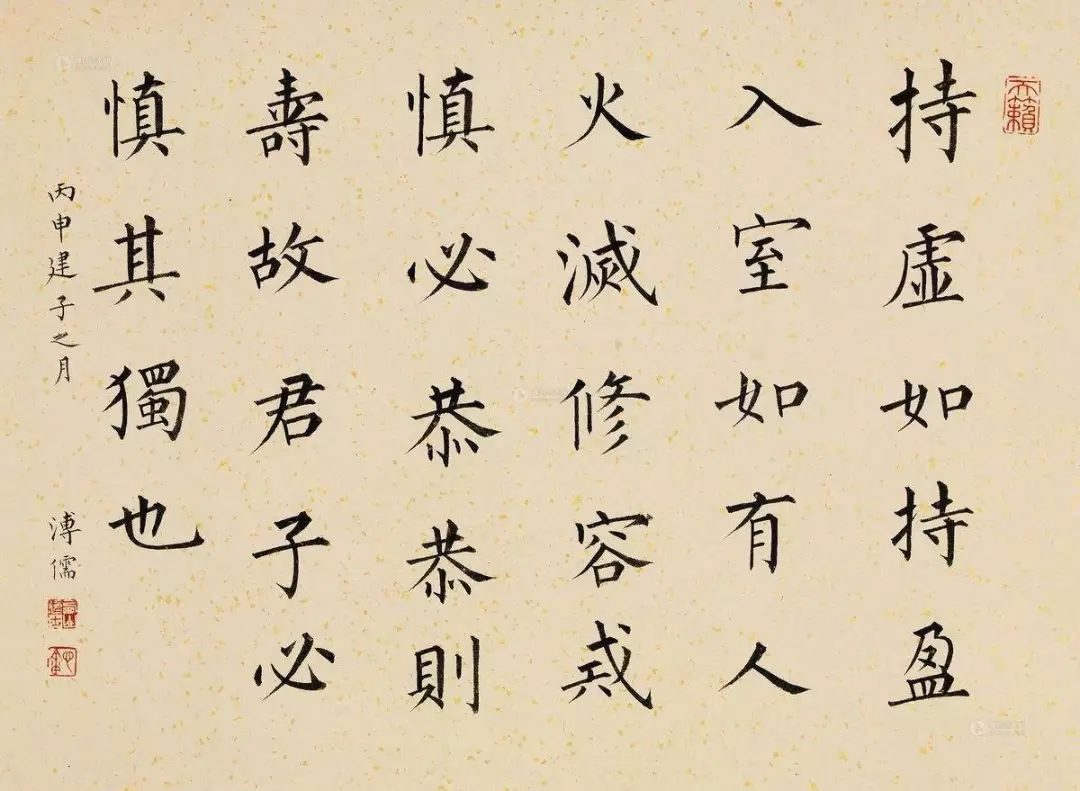 持虛如持盈
入室如有人
火滅修容戒
慎必恭恭則
壽故君子必
慎其獨也
丙申建子之月
溥儒